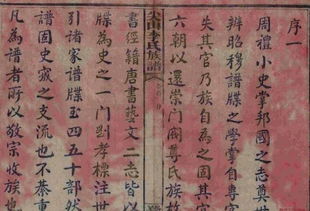 序一
周禮小史掌邦國之志奠
辨昭穆譜牒之學掌自專
失其官乃族自為之固其
六朝以還崇門閥尊氏族
李氏族譜
書經籍唐書藝文二志皆以
牒為史之一門劉孝標注世
引諸家譜牒至四五十部然
譜固史宬之支流也不綦重
凡為譜者所以敬宗收族也